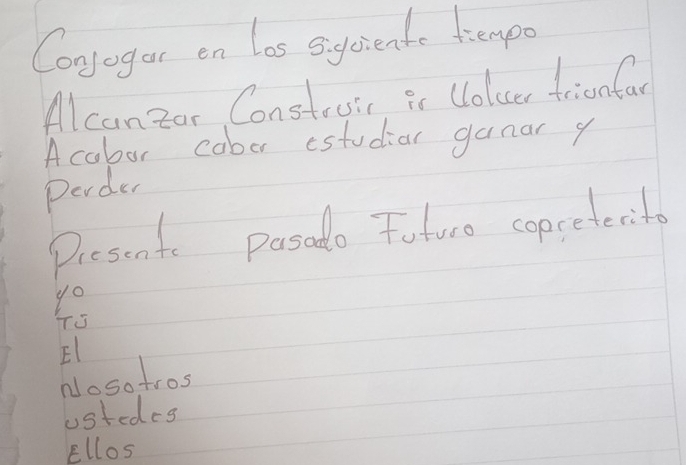 Conjugar en los siguiente tiempo
Alcanzar Construir ir Volver triunfar
Acabar caber estudiar ganar y
perder
Presente pasado Futuro copreterito
yo
TÚ
El
Nosotros
ustedes
Ellos